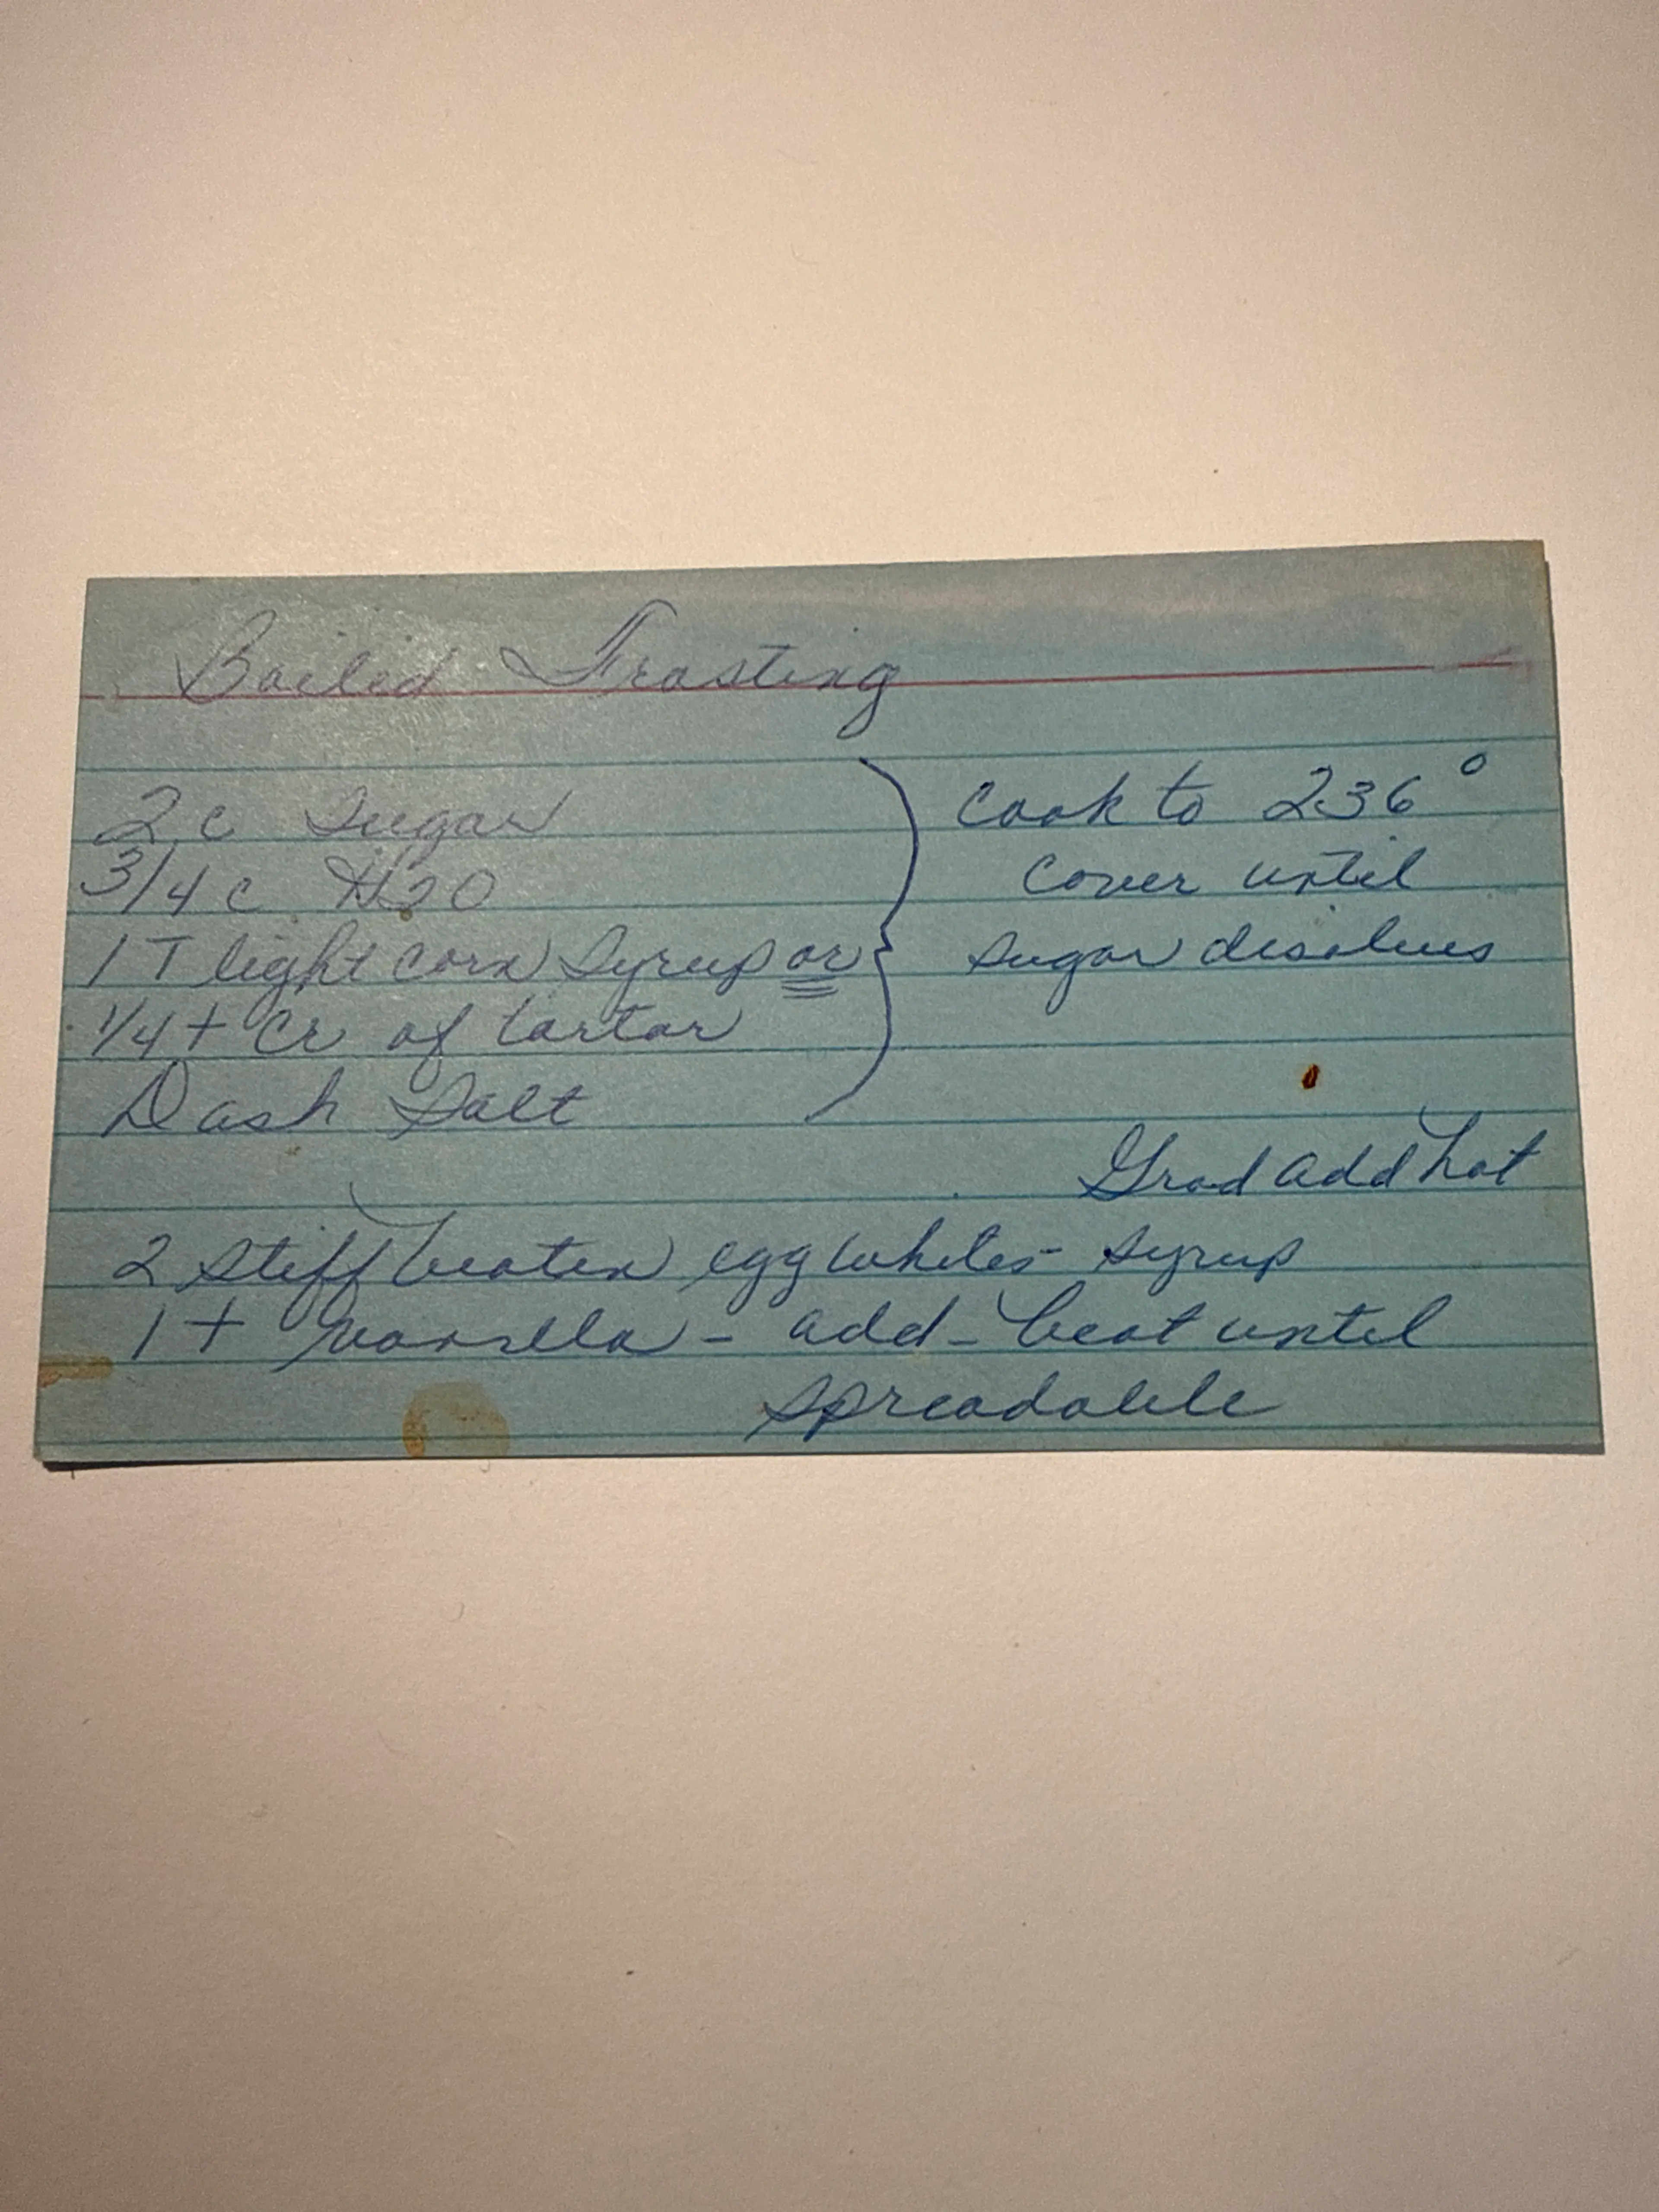 Boiled Frosting
2 c Sugar
3/4 c H2O
1 T light corn syrup or
1/4 t Cr of tartar
Dash Salt
Cook to 236°
cover until
sugar disolves
Grad add hot
2 stiff beaten egg whites - syrup
1 t vanilla - add - beat until
spreadable